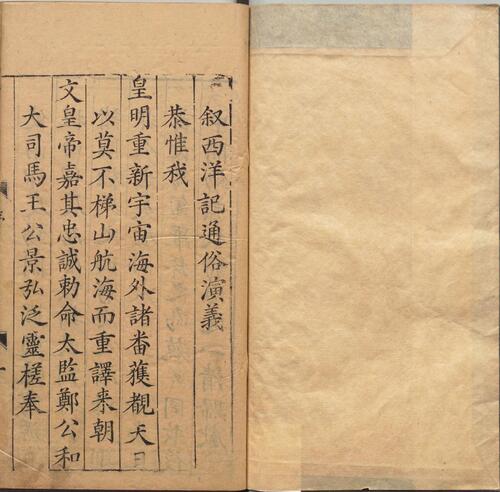 叙西洋記通俗演義
恭惟我
皇明重新宇宙海外諸番獲覩天日
以莫不梯山航海而重譯来朝
文皇帝嘉其忠誠勅命太監鄭公和
大司馬王公景弘泛靈槎奉